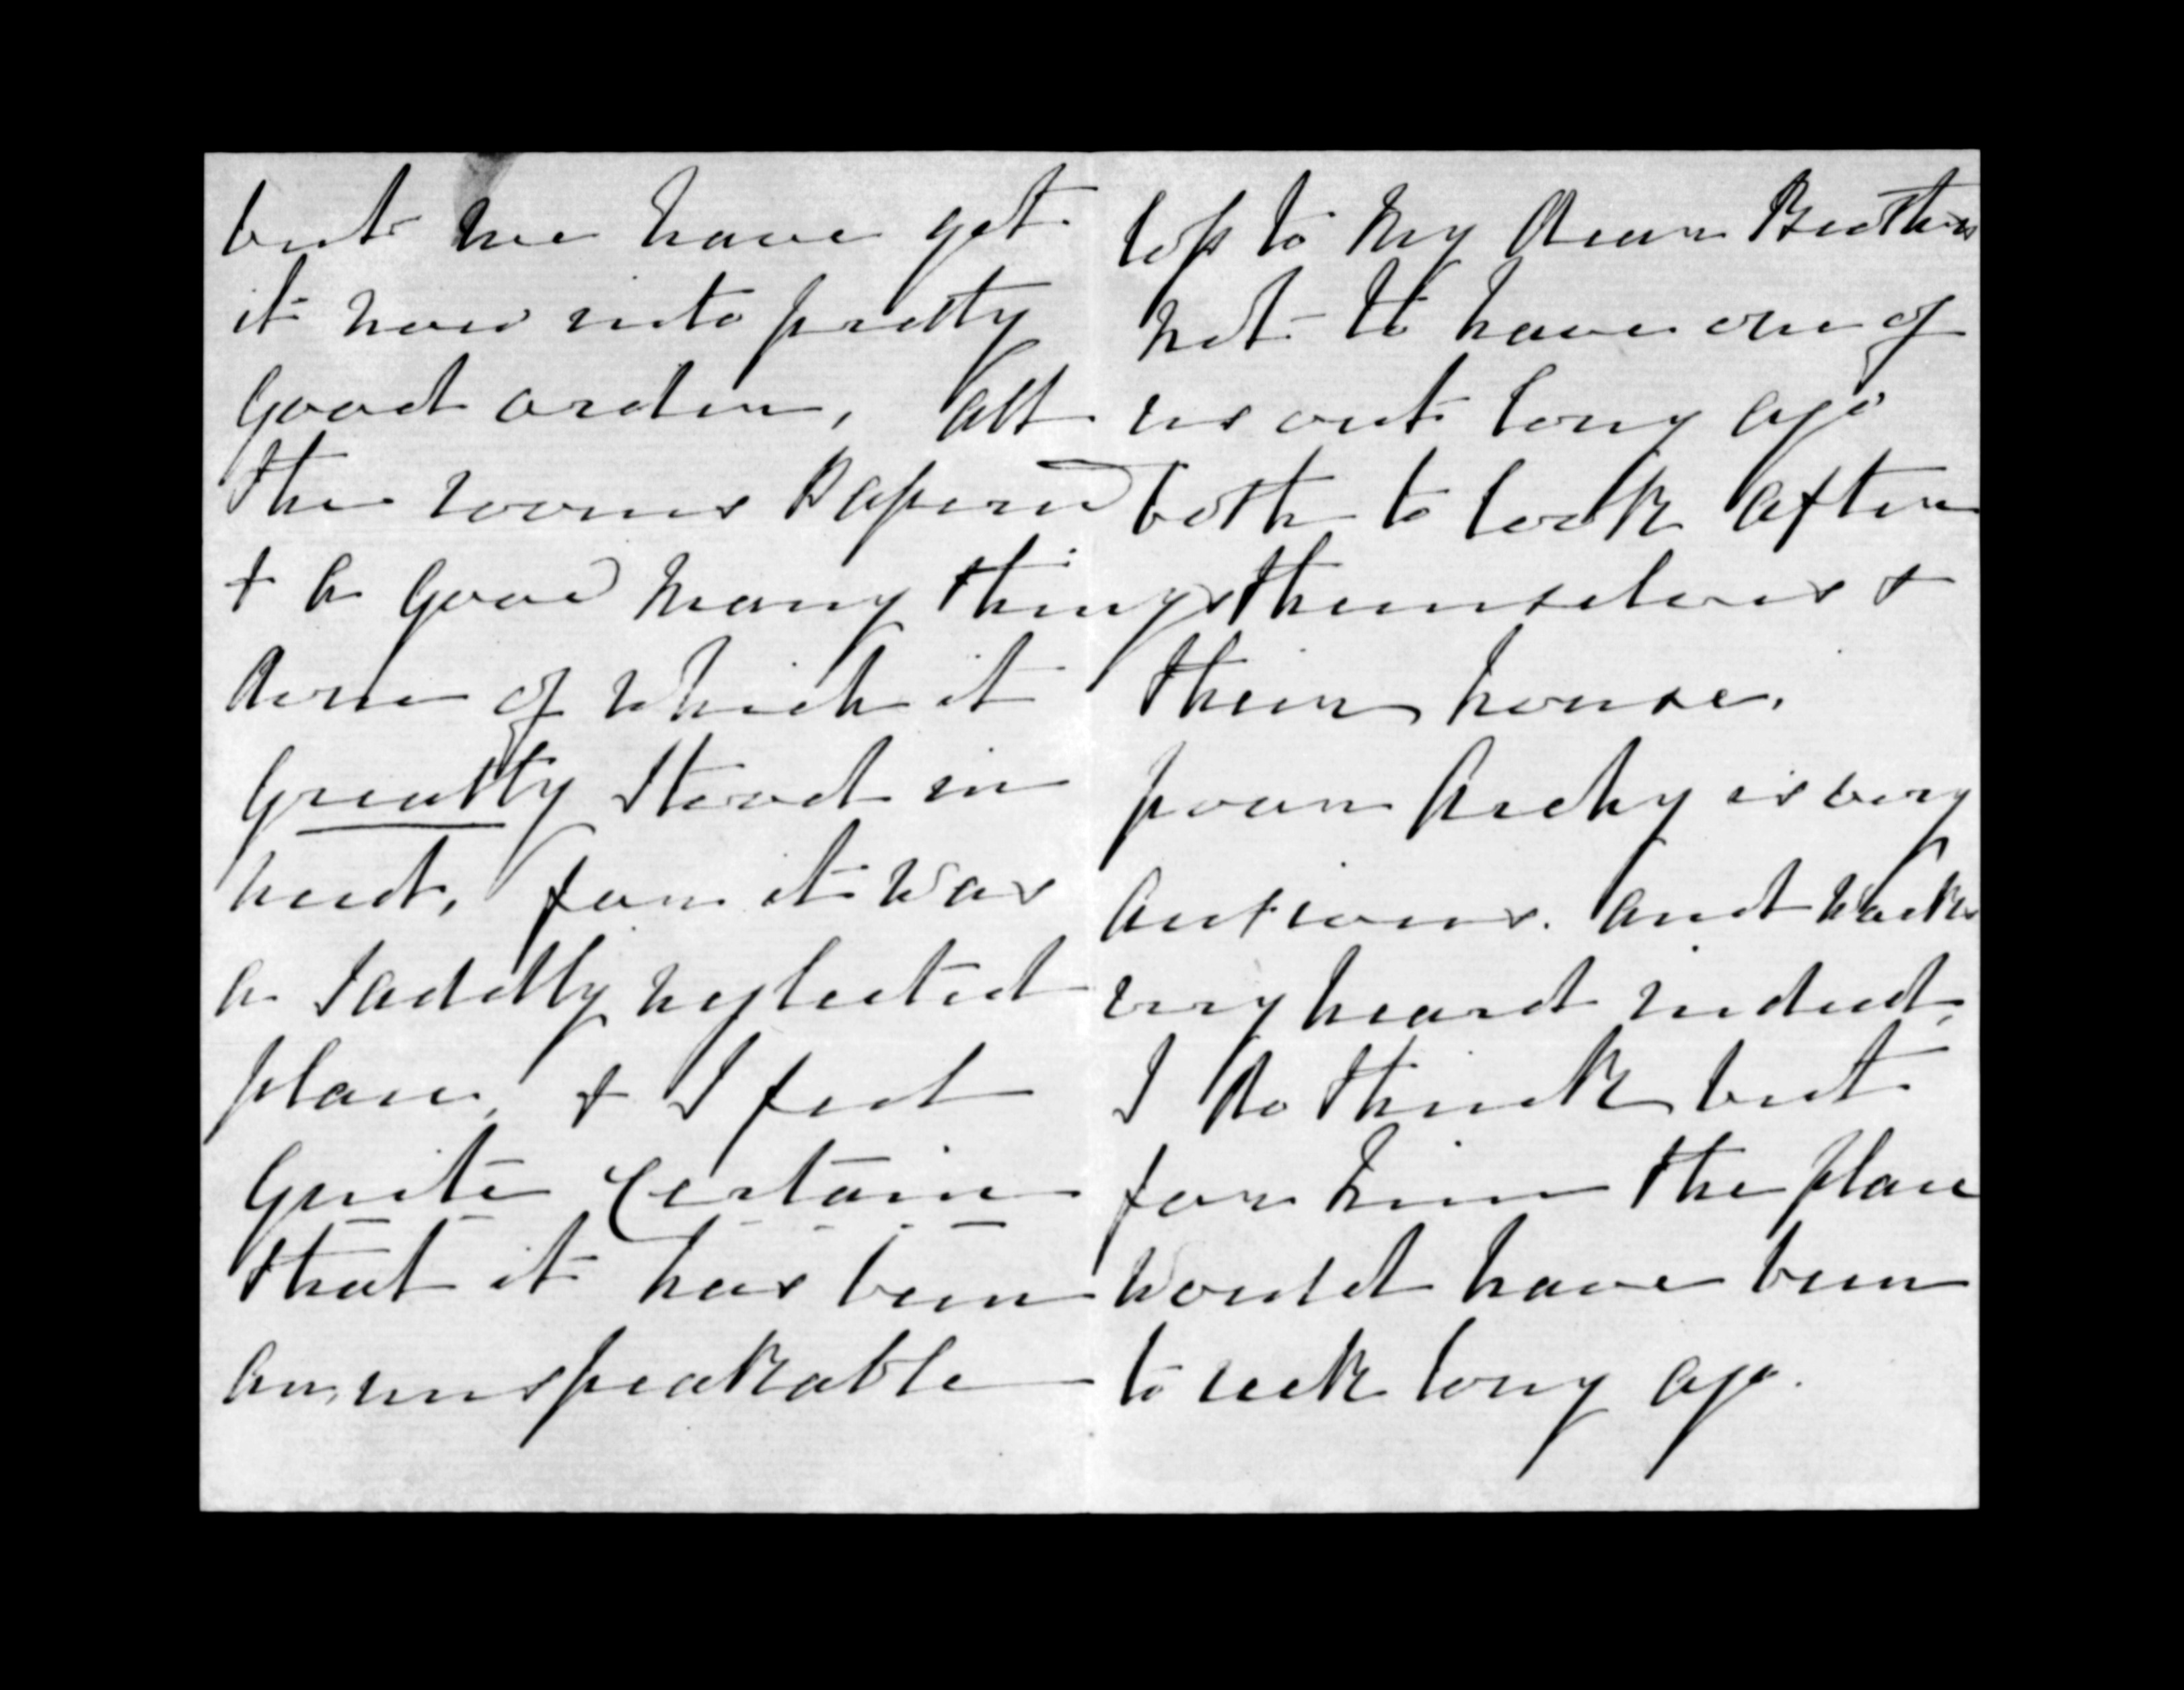 but we have got
it now into pretty
good order, all
the rooms papered
& a good many things
done of which it
greatly stood in
need, for it was
a sadly neglected
place, & I feel
quite certain
that it has been
an unspeakable
loss to my dear Brothers
not to have one of
us out long ago
both to look after
themselves &
their house.
poor Archy is very
anxious. and works
very hard indeed,
I do think but
for him the place
would have been
to seek long ago.